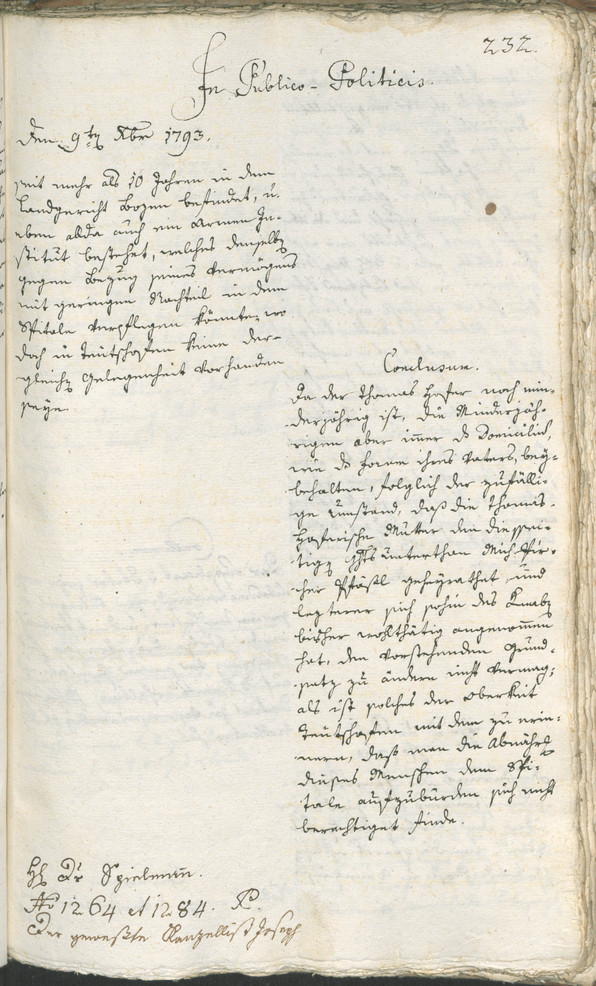 232.
In Publico-Politicis.
Den 9ten Xbr 1793.
seit mehr als 10 Jahren in dem
Landgericht Bozen befindet, u.
eben allda auch ein Armen In-
stitut bestehet, welches denselben
gegen Bezug seines Vermögens
mit geringen Nachteil in dem
Spitale verpflegen könnte, wo
doch in Teutschofen keine der-
gleichen Gelegenheit vorhanden
seye.
Conclusum.
Da der Thomas Hofer noch min-
derjährig ist, die Minderjäh-
rigen aber immer das Domicilium,
wie das Forum ihres Vaters, bey-
behalten, folglich der zufälli-
ge Umstand, daß die Thomas-
Hoferische Mutter den diessei-
tigen Unterthan Mich. Pir-
cher geheyrathet, und
letzterer sich sohin des Knaben
bisher wohlthätig angenommen
hat, den vorstehenden Grund-
satz zu ändern nicht vermag;
als ist solches der Oberkeit
Teutschofen mit dem zu erin-
nern, daß man die
dieses Menschen dem Spi-
tale aufzubürden sich nicht
berechtiget finde.
H. Dr Spielmann.
No 1264 et 1284. P.
Der geweßte Kanzellist Joseph